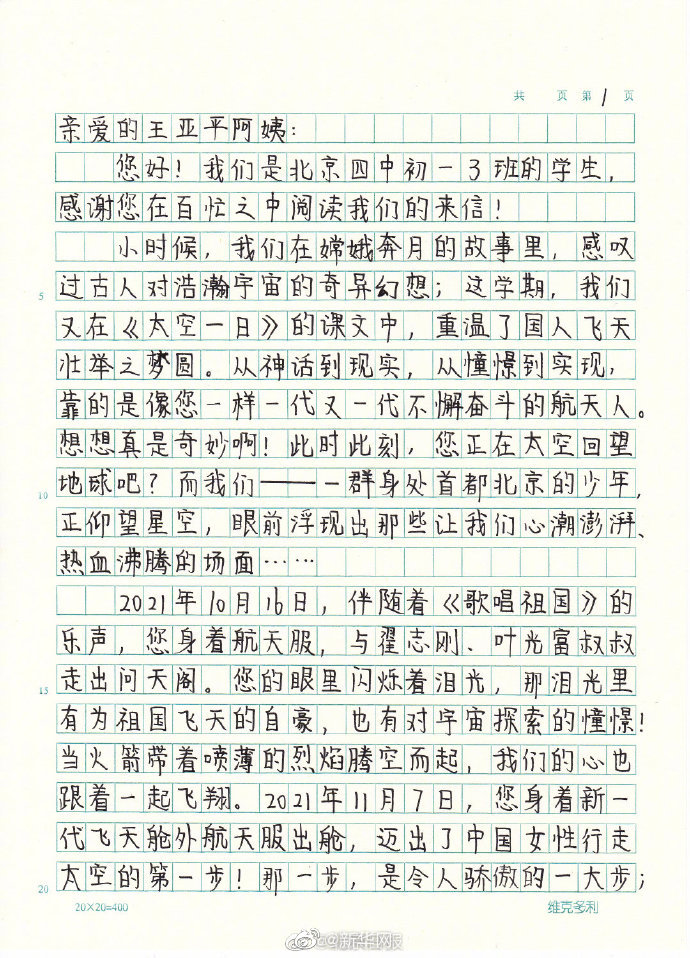 共 页 第 1 页
亲爱的王亚平阿姨：
您好！我们是北京四中初一3班的学生，
感谢您在百忙之中阅读我们的来信！
小时候，我们在嫦娥奔月的故事里，感叹
5 过古人对浩瀚宇宙的奇异幻想；这学期，我们
又在《太空一日》的课文中，重温了国人飞天
壮举之梦圆。从神话到现实，从憧憬到实现，
靠的是像您一样一代又一代不懈奋斗的航天人。
想想真是奇妙啊！此时此刻，您正在太空回望
10 地球吧？而我们——一群身处首都北京的少年，
正仰望星空，眼前浮现出那些让我们心潮澎湃、
热血沸腾的场面……
2021年10月16日，伴随着《歌唱祖国》的
乐声，您身着航天服，与翟志刚、叶光富叔叔
15 走出问天阁。您的眼里闪烁着泪光，那泪光里
有为祖国飞天的自豪，也有对宇宙探索的憧憬！
当火箭带着喷薄的烈焰腾空而起，我们的心也
跟着一起飞翔。2021年11月7日，您身着新一
代飞天舱外航天服出舱，迈出了中国女性行走
20 太空的第一步！那一步，是令人骄傲的一大步；
20×20=400 维克多利
@新华网